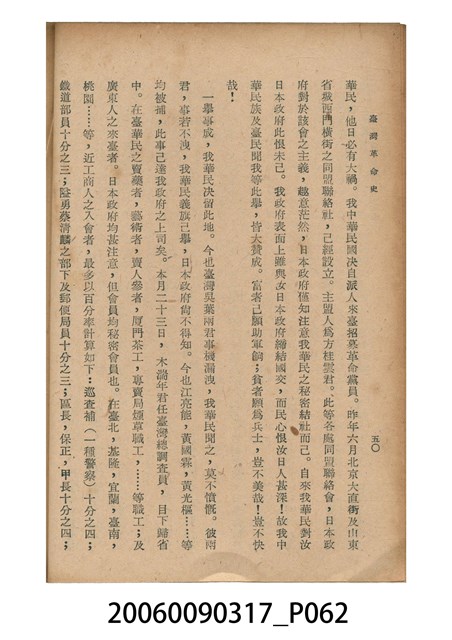 臺灣革命史
五〇
華民，他日必有大禍。我中華民國決自派人來臺招募革命黨員。昨年六月北京大直街及山東
省城西門橫街之同盟聯絡社，已經設立。主盟人爲方桂雲君。此等各處同盟聯絡會，日本政
府對於該會之主義，越意茫然，日本政府僅知注意我華民之秘密結社而已。自來我華民對汝
日本政府此恨未已。我政府表面上雖與汝日本政府締結國交，而民心恨汝日人甚深！故我中
華民族及臺民聞我等此舉，皆大贊成。富者己願助軍餉；貧者願爲兵士，豈不美哉！豈不快
哉！
一舉事成，我華民決留此地。今也臺灣吳葉兩君事機漏洩，我華民聞之，莫不憤慨。彼兩
君，事若不洩，我華民義旗己舉，日本政府尙不得知。今也江亮能，黃國霖，黃光樞……等
均被捕，此事己達我政府之上司矣。本月二十三日，木湍年君任臺灣總調查員，目下歸省
中。在臺華民之賣藥者，藝術者，賣人參者，厦門茶工，專賣局煙草職工，……等職工；及
廣東人之來臺者。日本政府均甚注意，但會員均秘密會員也。在臺北，基隆，宜蘭，臺南，
桃園……等，近工商人之入會者，最多以百分率計算如下：巡查補（一種警察）十分之四；
鐵道部員十分之三；隘勇蔡清麟之部下及郵便局員十分之三；區長，保正，甲長十分之四；
20060090317_P062